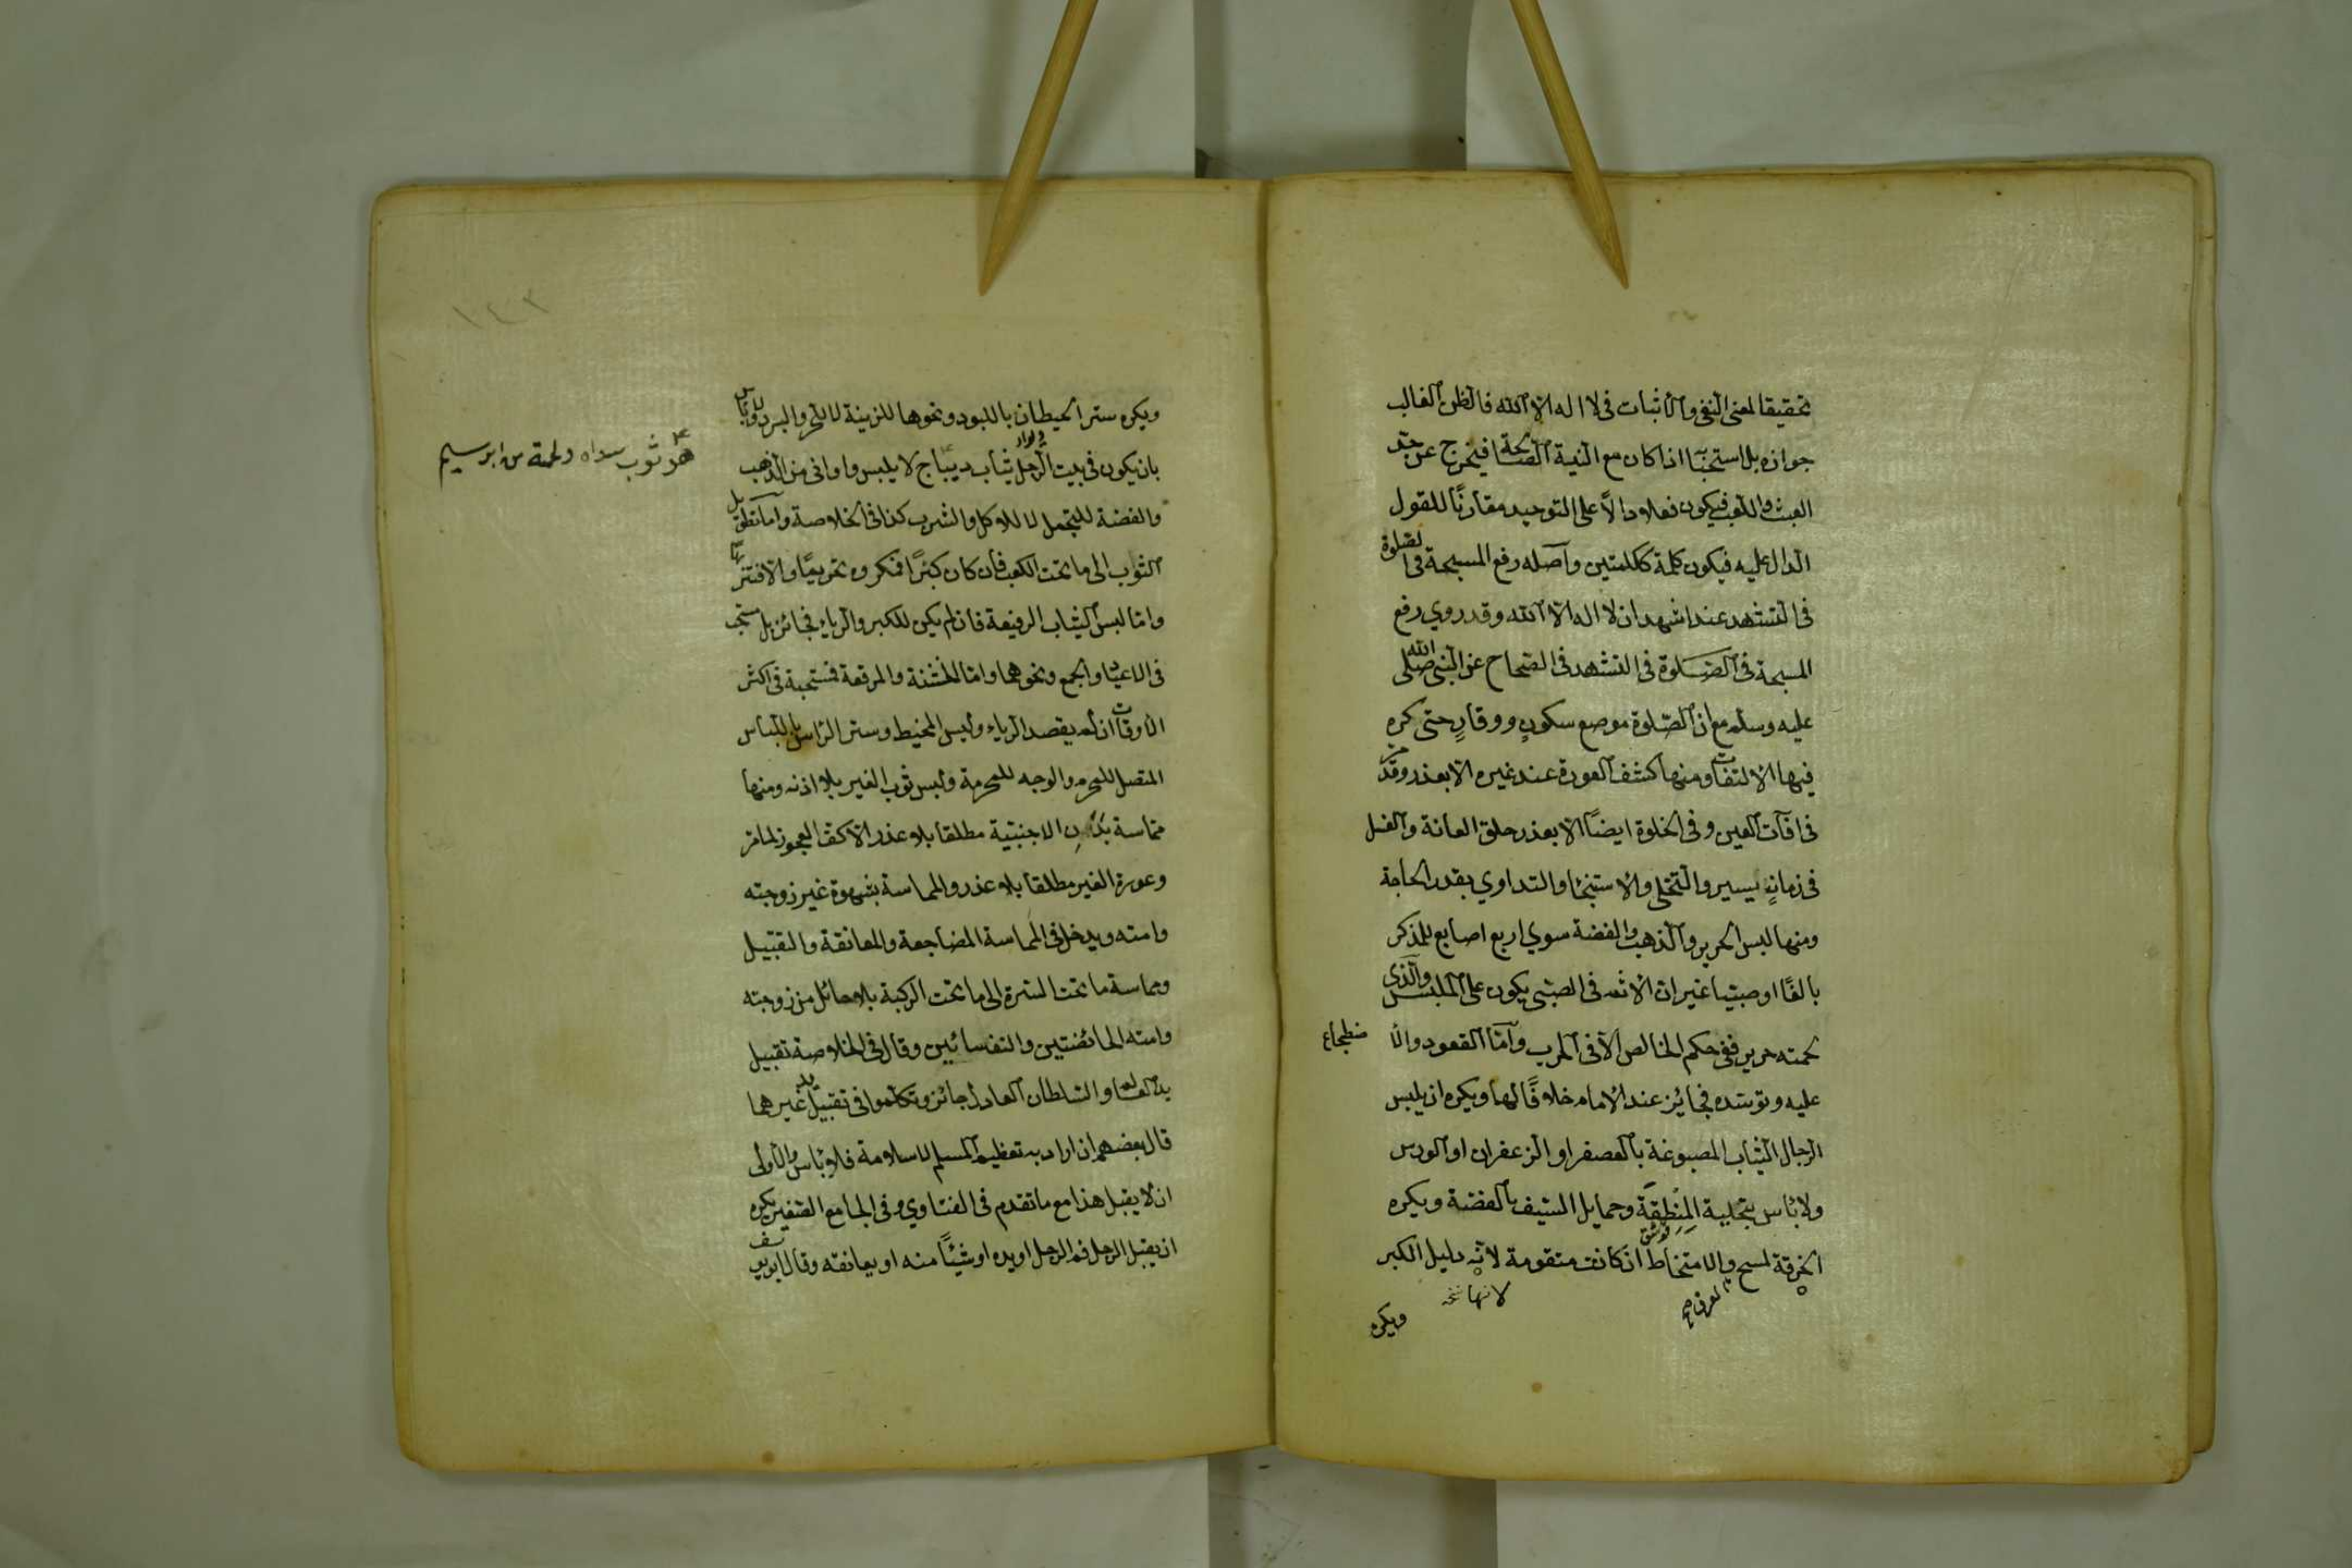 تحقيقا لمعنى النفى والاثبات فى لا اله الا الله فالظن الغالب
جوازه بل استحبابا اذا كان مع النية الصالحة فيخرج عن حد
العبث واللعب فيكون فعلا دالاً على التوحيد مقارنًا للقول
الدال عليه فيكون كلمة ككلمتين وأصله رفع المسبحة فى الصلوة
فى التشهد عند اشهد ان لا اله الا الله وقد روي رفع
المسبحة فى الصلوة فى التشهد فى الصحاح عن النبى صلى الله
عليه وسلم مع ان الصلوة موضع سكونٍ ووقارٍ حتى كره
فيها الالتفات ومنها كشف العورة عند غيره الا بعذر وقد مر
فى آفات العين وفى الخلوة ايضًا الا بعذر حلق العانة والغسل
فى زمانٍ يسير والتخلى والاستنجا والتداوي بقدر الحاجة
ومنها لبس الحرير والذهب والفضة سوي اربع اصابع للذكر
بالغًا او صبيا غير ان الاثم فى الصبى يكون على الملبس والذى
لحمته حرير ففى حكم الخالص الا فى الحرب وأمّا القعود والا
ضطجاع
عليه وتوسّده فجائز عند الامام خلافًا لهما ويكره ان يلبس
الرجال الثياب المصبوغة بالعصفر او الزعفران او الورس
ولا بأس بتحلية المِنْطِقَة وحمايل السيف بالفضة ويكره
الخرقة لمسح والامتخاط ان كانت متقومة لانه دليل الكبر
العرق صح
لانها نسخه
ويكره
١٤٢
ويكره ستر الحيطان باللبود ونحوها للزينة لا للحر والبرد ولا بأس
بان يكون فى بيت الرجل ثياب ديباج لا يلبس واوانى من الذهب
هو ثوب سداه ولحمته من ابريسم
والفضة للتجمل لا للاكل والشرب كذا فى الخلاصة وأما تطويل
الثوب الى ما تحت الكعب فأن كان كبرًا فمكروه تحريميًا والا فتنزيهًا
وامّا لبس الثياب الرفيعة فان لم يكن للكبر والرياء فجائز بل مستحب
فى الاعياد والجمع ونحوهما وامّا الخشنة والمرقعة فمستحبة فى اكثر
الاوقات ان لم يقصد الرياء ولبس المخيط وستر الرأس باللباس
المتصل للمحرم والوجه للمحرمة ولبس ثوب الغير بلا اذنه ومنها
مماسة بدن الاجنبية مطلقا بلا عذر الا كف العجوز لما مر
وعورة الغير مطلقا بلا عذر والمماسة بشهوة غير زوجته
وامته ويدخل فى المماسة المضاجعة والمعانقة والتقبيل
ومماسة ما تحت السرة الى ما تحت الركبة بلا حائل من زوجته
وامته الحائضتين والنفسائين وقال فى الخلاصة تقبيل
يد العالم والسلطان العادل جائز وتكلموا فى تقبيل يد غيرهما
قال بعضهم ان اراد به تعظيم المسلم لاسلامه فلا بأس والأولى
ان لا يقبل هذا مع ما تقدم فى الفتاوي وفى الجامع الصغير يكره
ان يقبل الرجل فم الرجل او يده او شيئًا منه او يعانقه وقال ابو يوسف